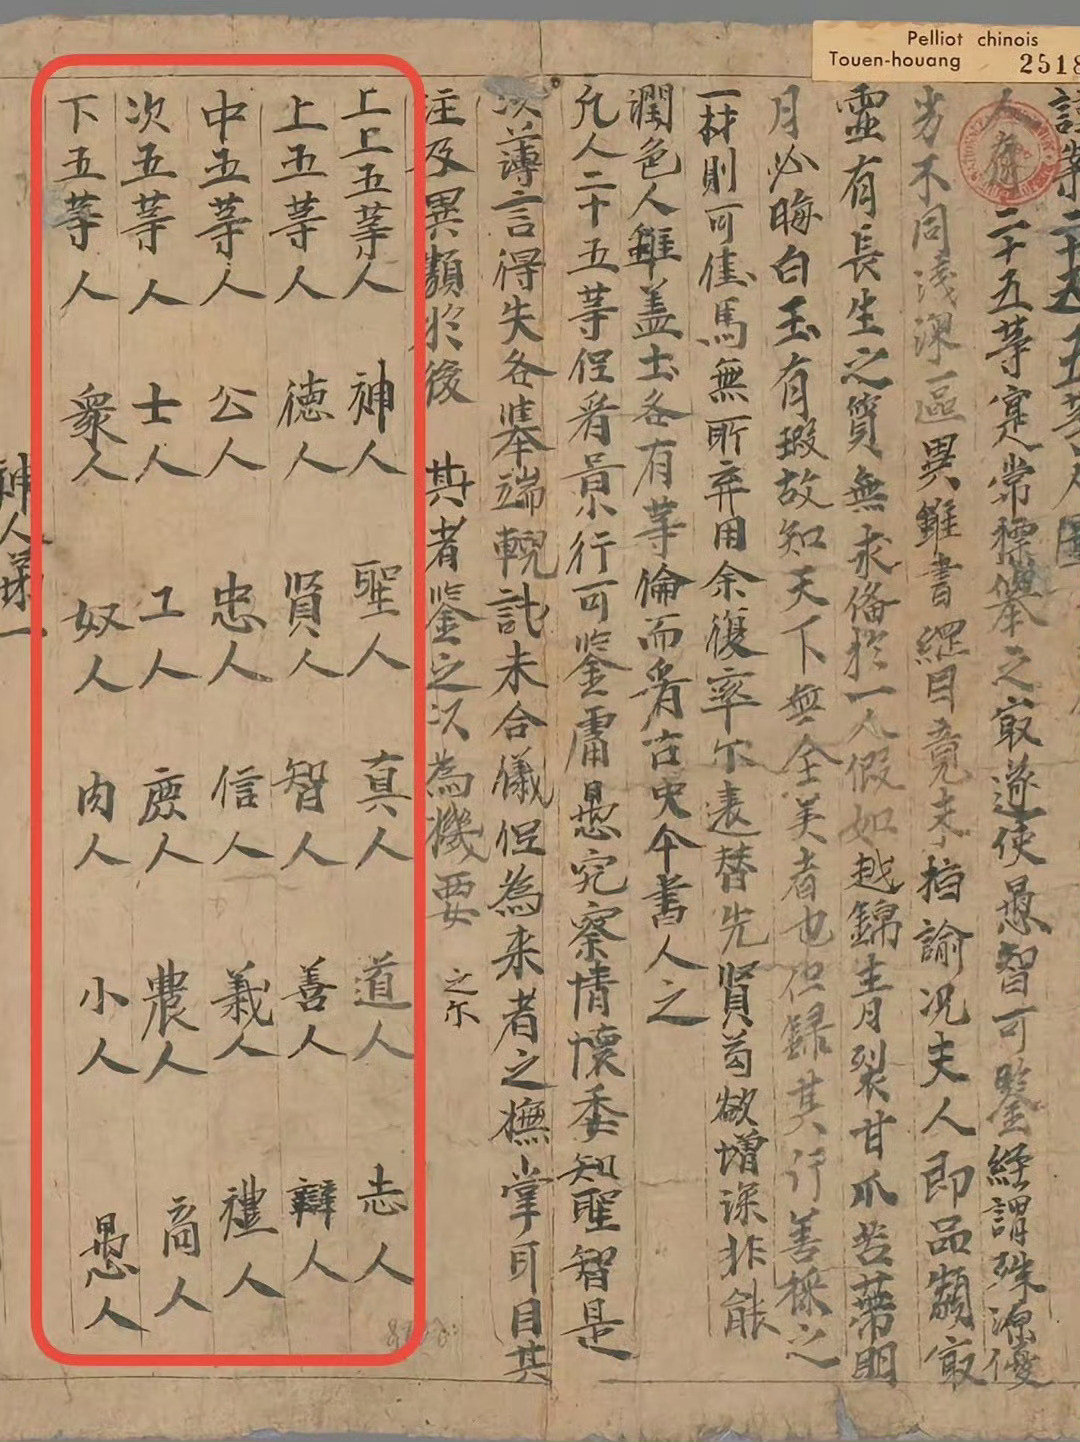 Pelliot chinois
Touen-houang 2518
二十五等人圖
二十五等寔常標舉之宼遂使愚智可鑒經謂殊源優
劣不同淺深區異雖書經目竟未指諭況夫人即品類宼
靈有長生之質無求俻於一人假如越錦生月裂甘瓜苦蒂明
月必晦白玉有瑕故知天下無全美者也但録其行善採之
一材則可佳馬無所弃用余復率尓表替先賢苟欲增深非能
潤色人雖盖士各有等倫而看古史今書人之
凡人二十五等但看景行可鑒庸愚究察情懷委知聖智是
以薄言得失各舉端軦託未合儀但為来者之撫掌耳目其
注及異類於後 其者鉴之以為機要 之尓
上上五等人 神人 聖人 真人 道人 志人
上五等人 徳人 賢人 智人 善人 辯人
中五等人 公人 忠人 信人 義人 禮人
次五等人 士人 工人 庶人 農人 商人
下五等人 衆人 奴人 肉人 小人 愚人
神人第一